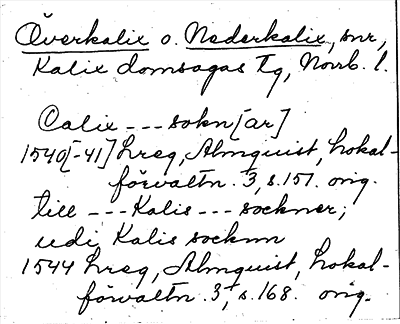 Överkalix o. Nederkalix, snr,
Kalix domsagas tg, Norrb. l.
Calix --- sokn[ar]
1540[-41] hreg, Almquist, Lokal-
förvaltn. 3, s. 157. orig.
till --- Kalis --- sockner;
udi Kalis socknn
1544 hreg, Almquist, Lokal-
förvaltn. 3, s. 168. orig.